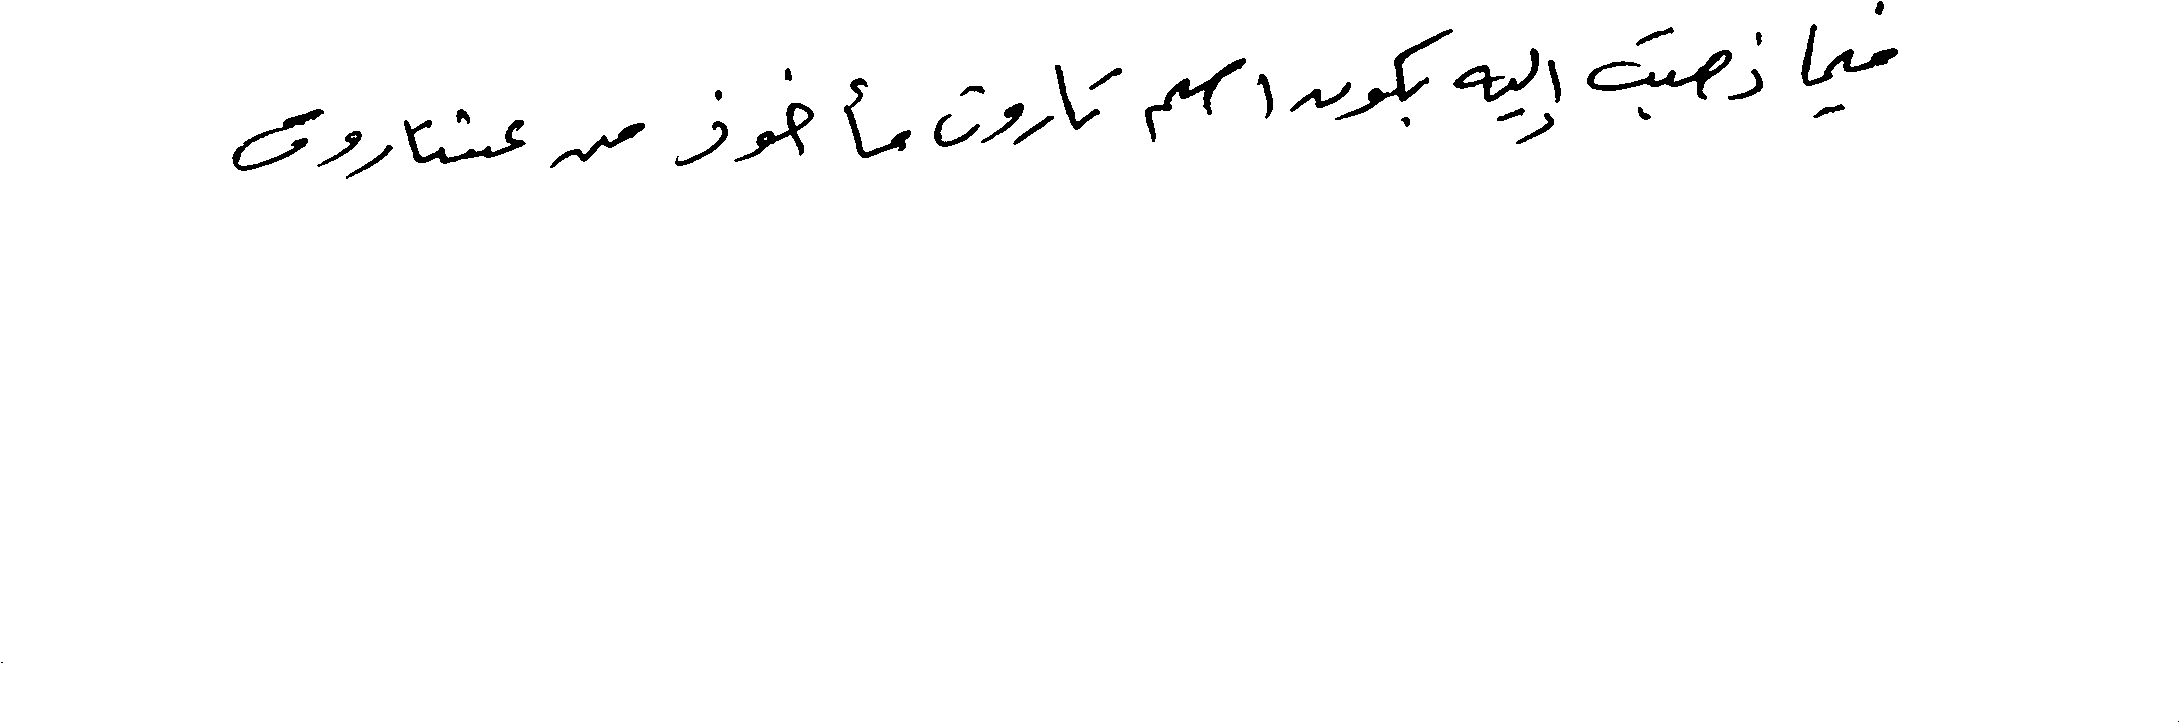 فيما ذهبت إليه بكون اسم تاروت مأخوذ من عشتاروت